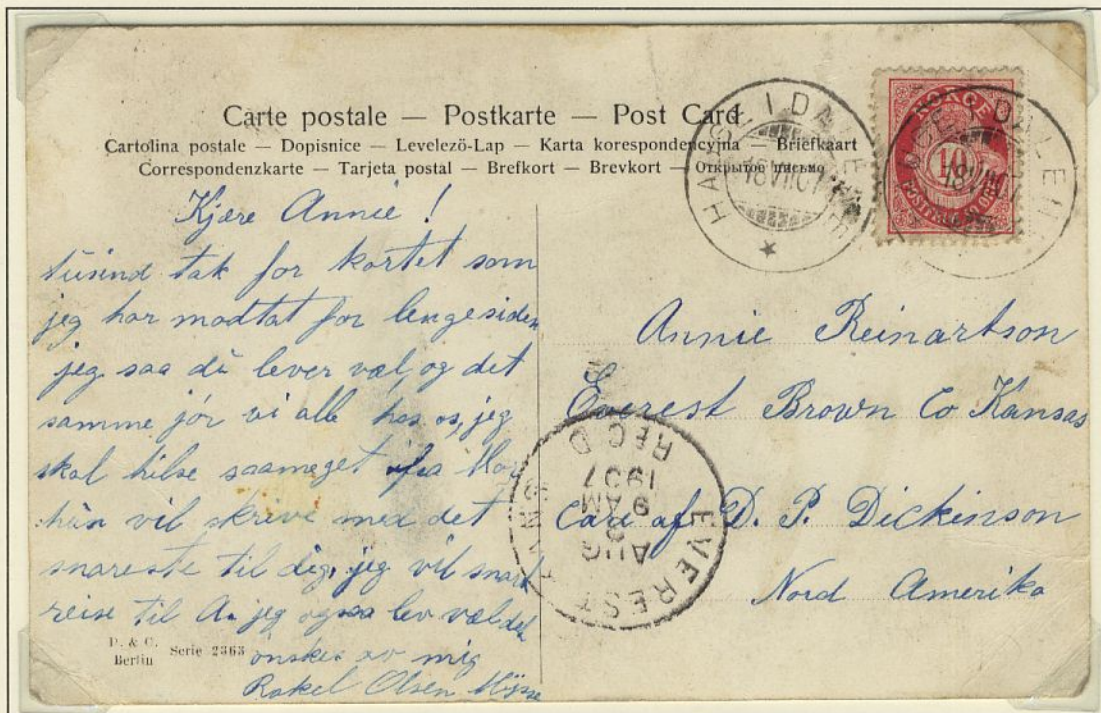 Carte postale — Postkarte — Post Card
Cartolina postale — Dopisnice — Levelező-Lap — Karta korespondencyjna — Briefkaart
Correspondenzkarte — Tarjeta postal — Brefkort — Brevkort — Открытое письмо
NORGE
10
18 VII 07
18 VII
Kjære Annie!
tusind tak for kortet som
jeg har modtat for lenge siden
jeg saa du lever væl, og det
samme jör vi alle hos os, jeg
skal hilse saameget fra Mor
hun vil skrive med det
snareste til dig, jeg vil snart
reise til A. jeg ogsaa lev væl det
önskes av mig
Rakel Olsen
P. & C.
Berlin
Serie 2363
Annie Reinartson
Everest Brown Co Kansas
Care af D. P. Dickinson
Nord Amerika
EVEREST
AUG
9 AM
1907
REC'D